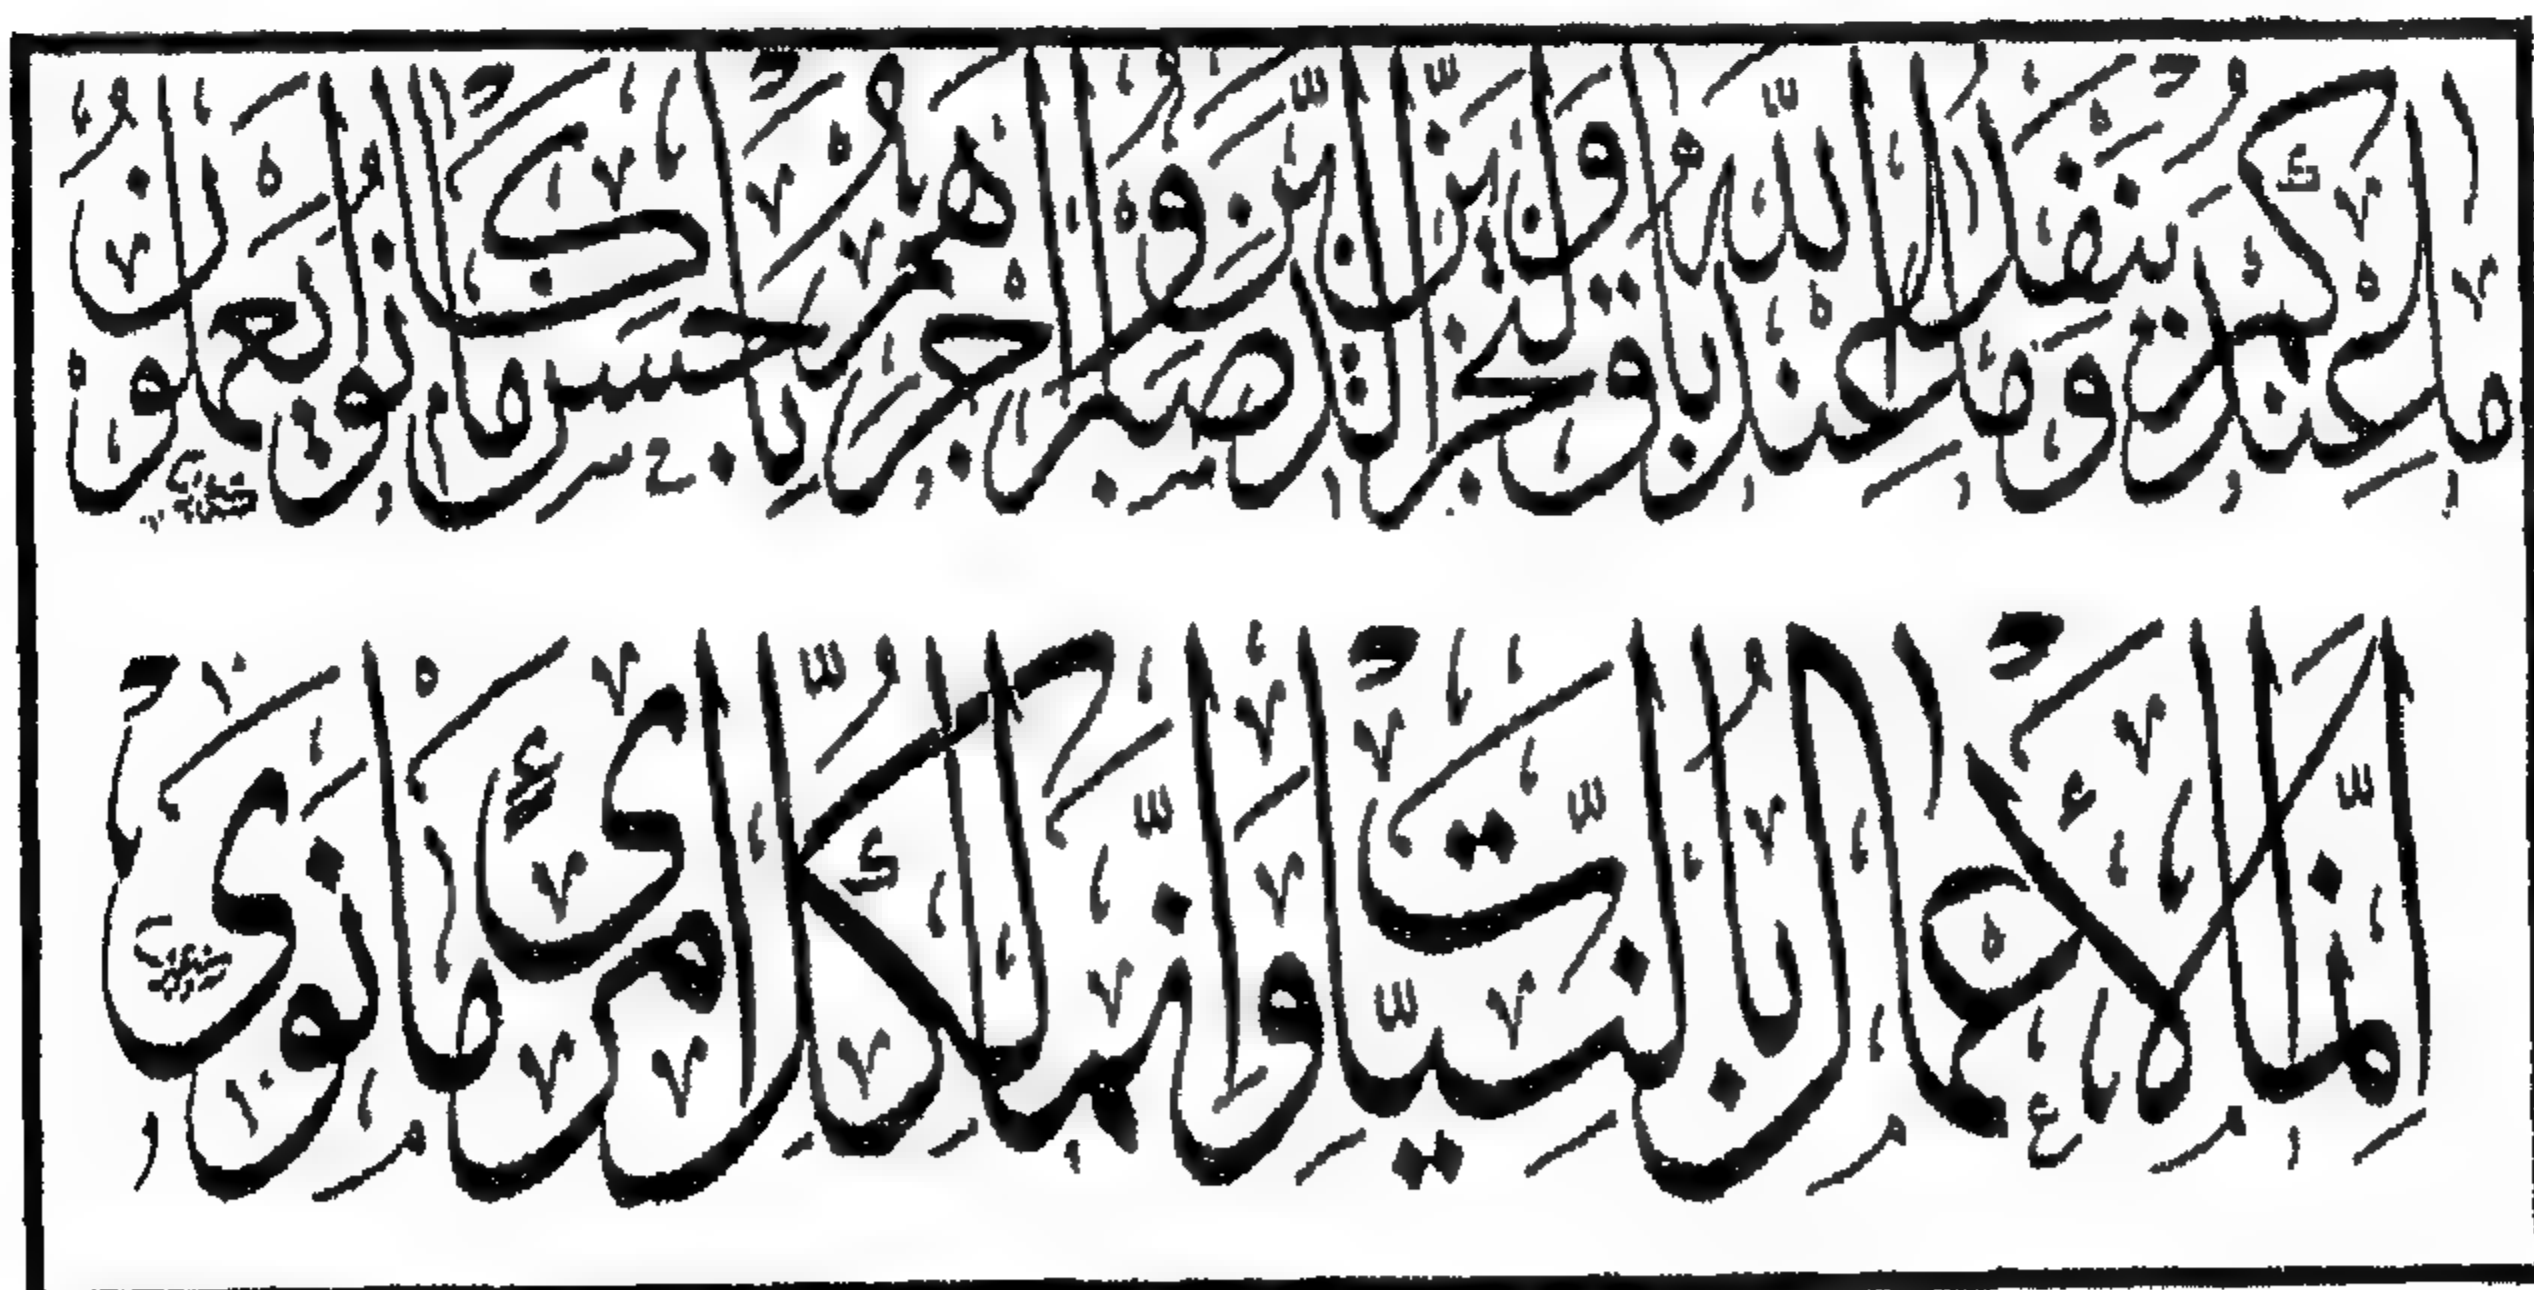 مَا عِنْدَكُمْ يَنْفَدُ وَمَا عِنْدَ اللّٰهِ بَاقٍ وَلَنَجْزِيَنَّ الَّذِينَ صَبَرُوا أَجْرَهُمْ بِأَحْسَنِ مَا كَانُوا يَعْمَلُونَ
إِنَّمَا الْأَعْمَالُ بِالنِّيَّاتِ وَإِنَّمَا لِكُلِّ امْرِئٍ مَا نَوَى